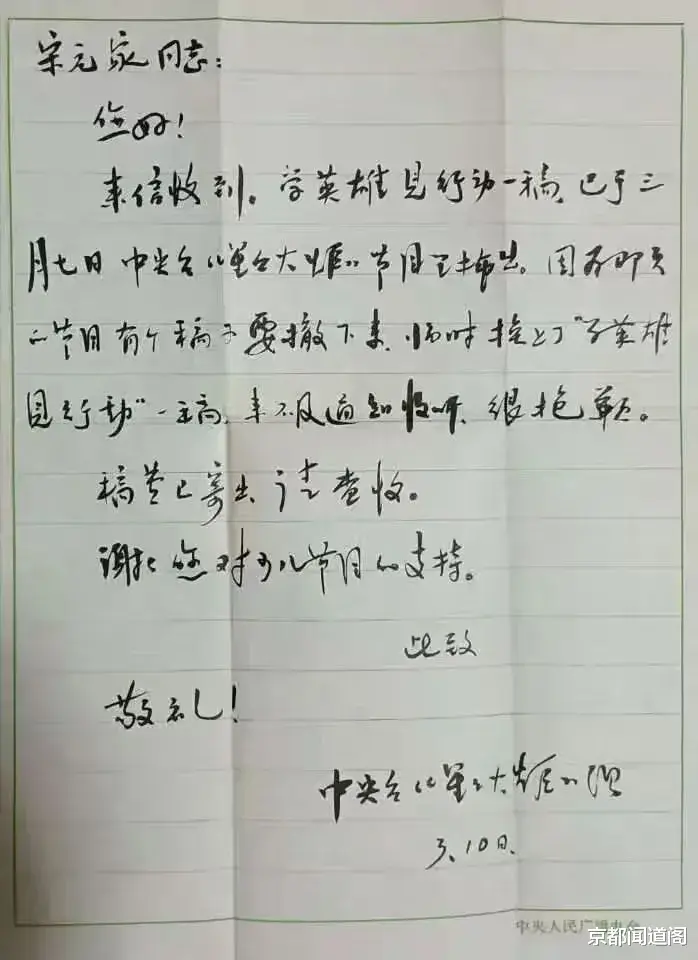 宋元家同志：
您好！
来信收到。学英雄见行动一稿，已于三
月七日中央台《星星火炬》节目里播出。因为那天
的节目有个稿子要撤下来，临时换上了“学英雄
见行动”一稿，来不及通知收听，很抱歉。
稿费已寄出，请查收。
谢谢您对少儿节目的支持。
此致
敬礼！
中央台《星星火炬》组
3、10日、
中央人民广播电台
京都闻道阁